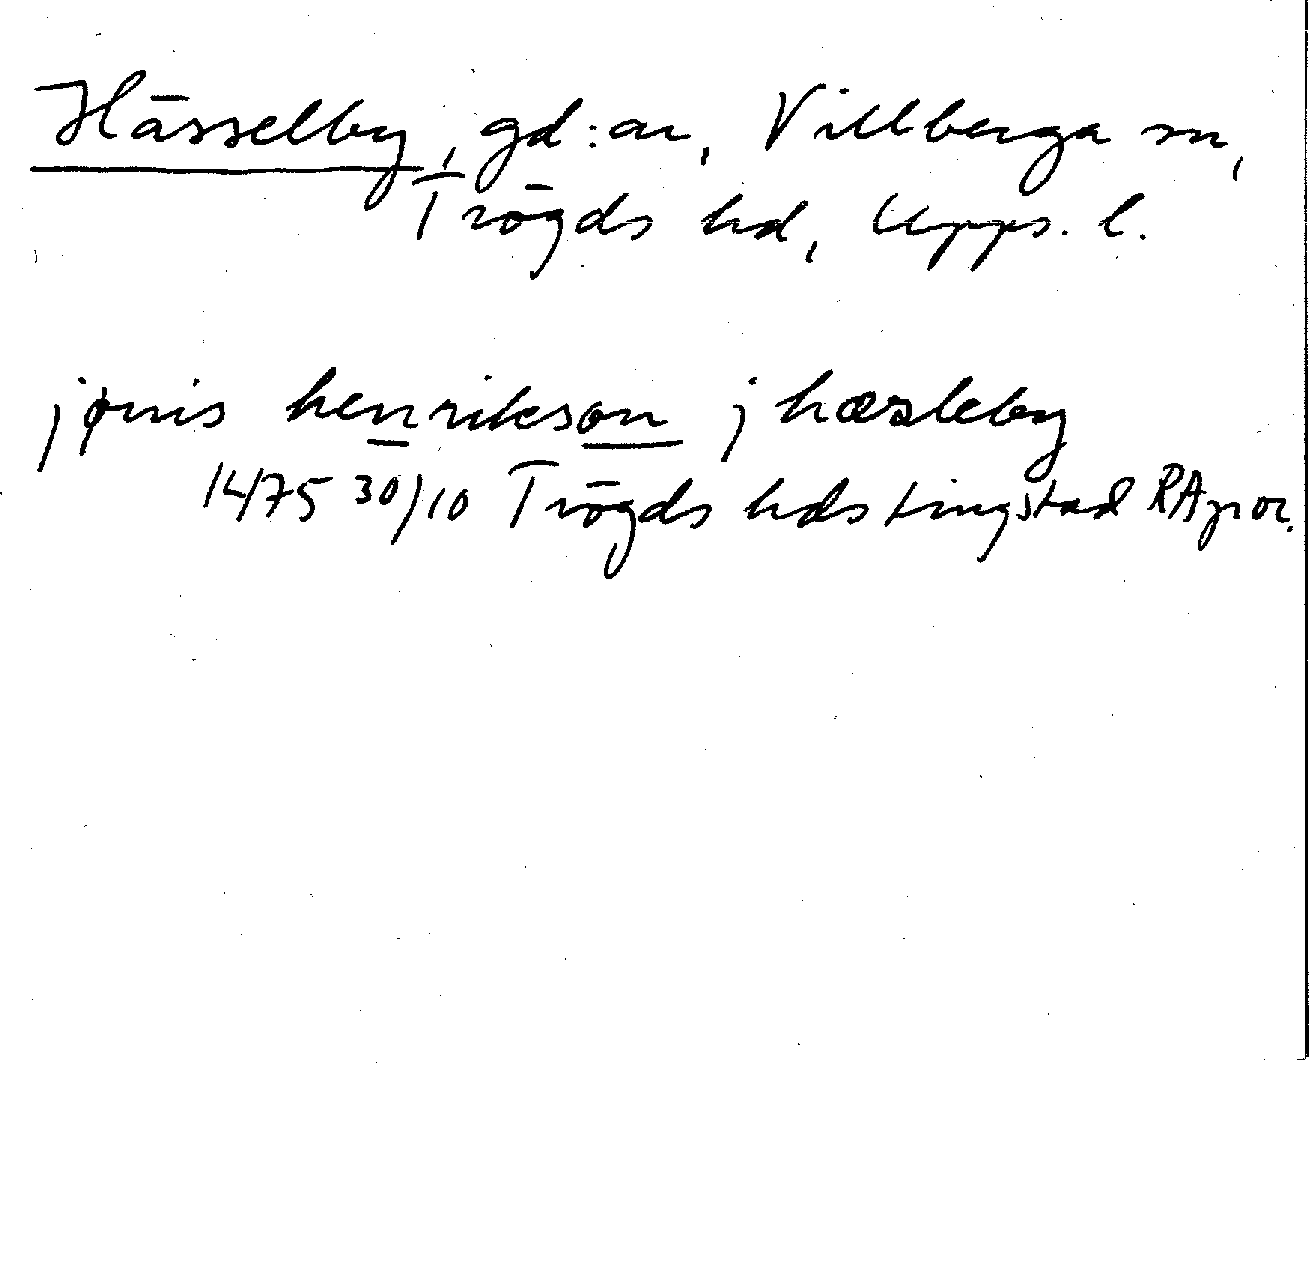 Hässelby, gd:ar, Villberga sn,
Trögds hd, Upps. l.
jønis henrikson j hæsleby
1475 30/10 Trögds hds tingstad RAp or.